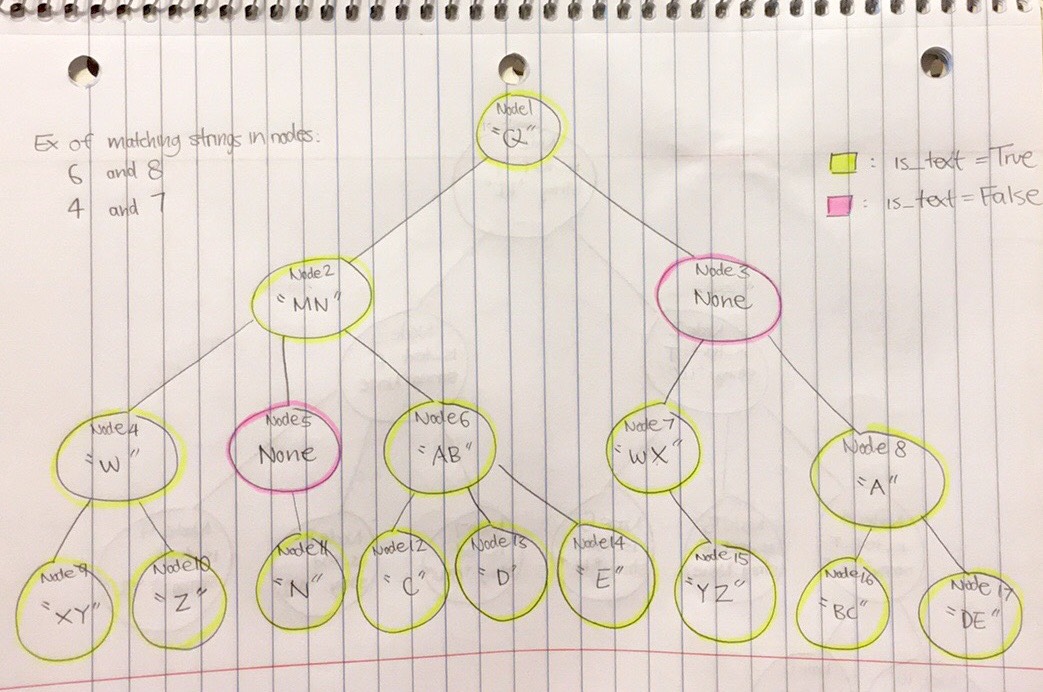 Node1
"Q"
Ex of matching strings in nodes:
6 and 8
4 and 7
: is_text = True
: is_text = False
Node2
"MN"
Node3
None
Node4
"W"
Node5
None
Node6
"AB"
Node7
"WX"
Node 8
"A"
Node9
"XY"
Node10
"Z"
Node11
"N"
Node12
"C"
Node13
"D"
Node14
"E"
Node15
"YZ"
Node16
"BC"
Node 17
"DE"